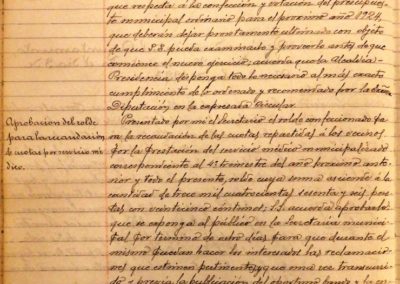 que respecta a la confección y votación del presupues-
to municipal ordinario para el próximo año 1924,
que deberán dejar prontamente ultimado con objeto
de que S.S. pueda examinarlo y proveerlo antes de que
comience el nuevo ejercicio; acuerda que la Alcaldía-
Presidencia disponga todo lo necesario al más exacto
cumplimiento de lo ordenado y recomendado por la dicha
Diputación en la expresada Circular.
Aprobación del rolde
para la recaudación
de cuotas por servicio mé-
dico.
Presentado por mí el Secretario el rolde confeccionado pa-
ra la recaudación de las cuotas repartidas á los vecinos
por la prestación del servicio médico municipalizado
correspondiente al 4º trimestre del año próximo ante-
rior y todo el presente, cuya suma asciende á la
cantidad de trece mil cuatrocientas sesenta y seis pese-
tas con veinticinco céntimos; se acuerda aprobarlo
que se exponga al público en la Secretaría munici-
pal por término de ocho días para que durante el
mismo puedan hacer los interesados las reclamacio-
nes que estimen pertinentes, y que una vez transcurri-
do y previa la publicación del oportuno bando y la co-